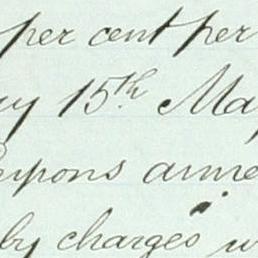 per cent per
15th May
coupons anne
by charges w